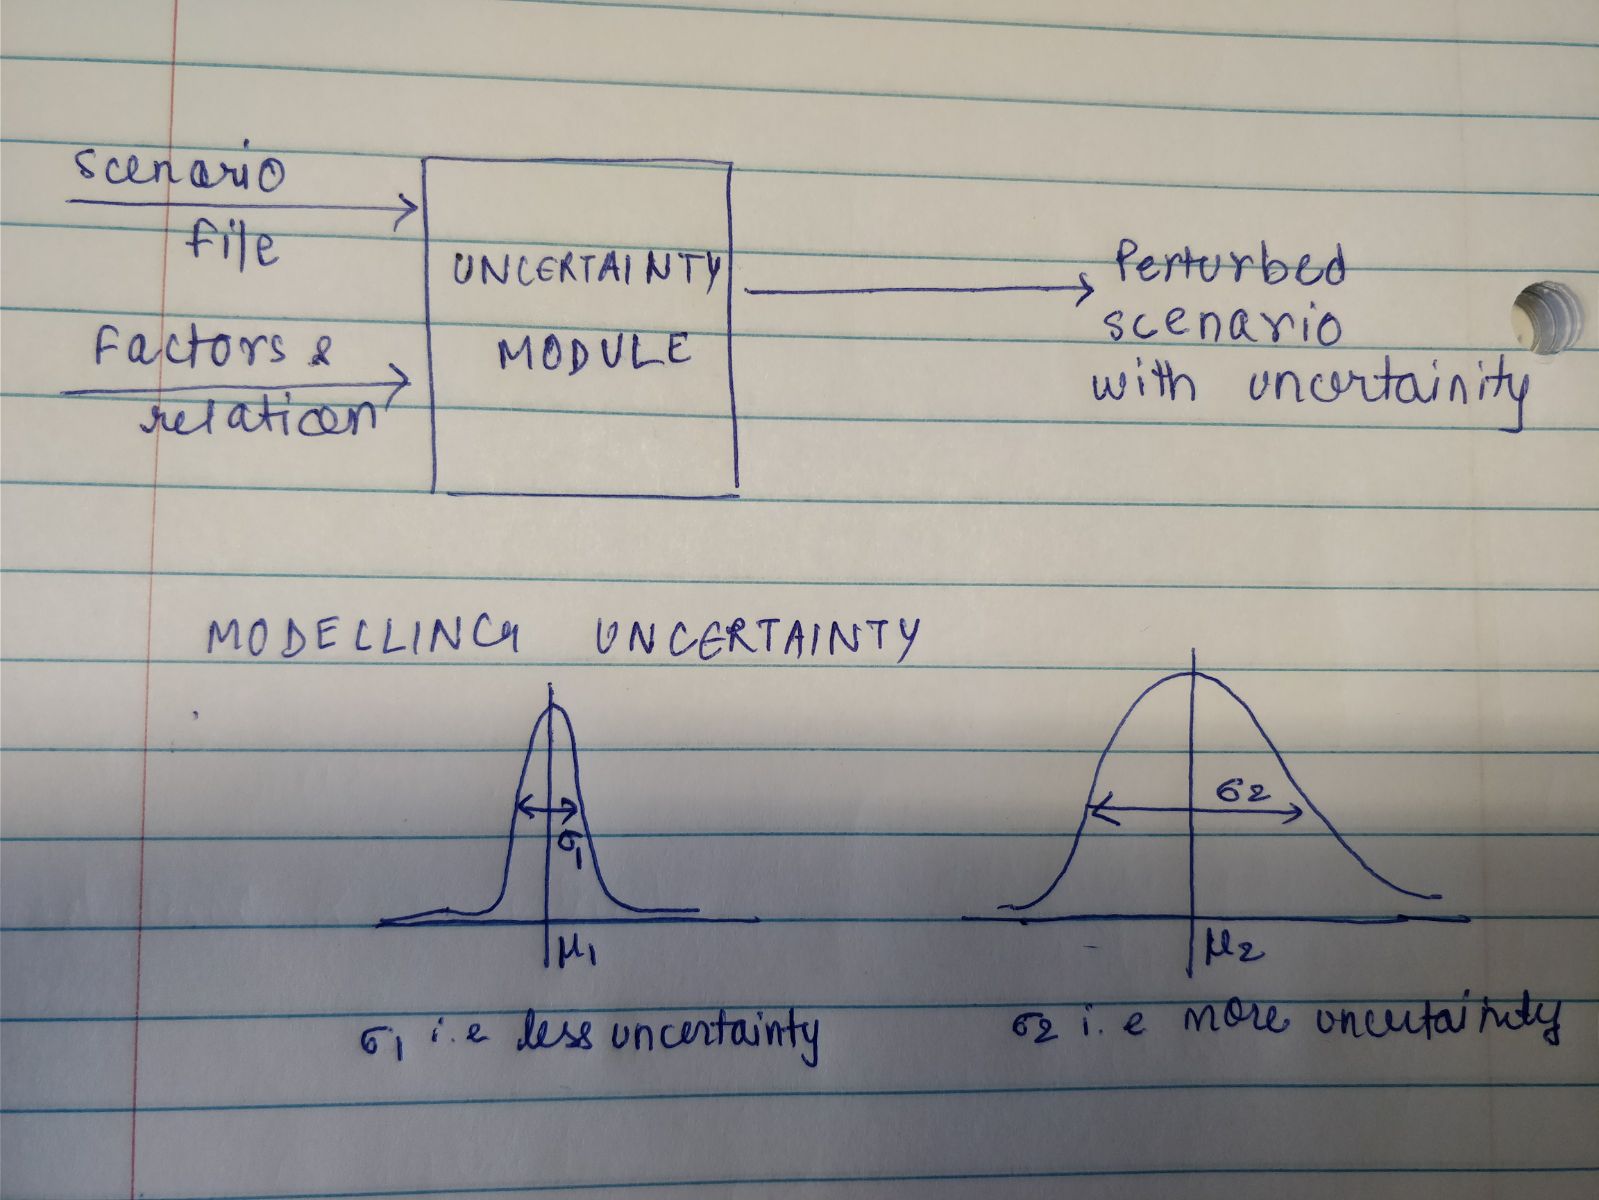 scenario
file
UNCERTAINTY
MODULE
Factors &
relation
Perturbed
scenario
with uncertainity
MODELLING UNCERTAINTY
σ1
μ1
σ2
μ2
σ1 i.e less uncertainty
σ2 i.e more uncertainty